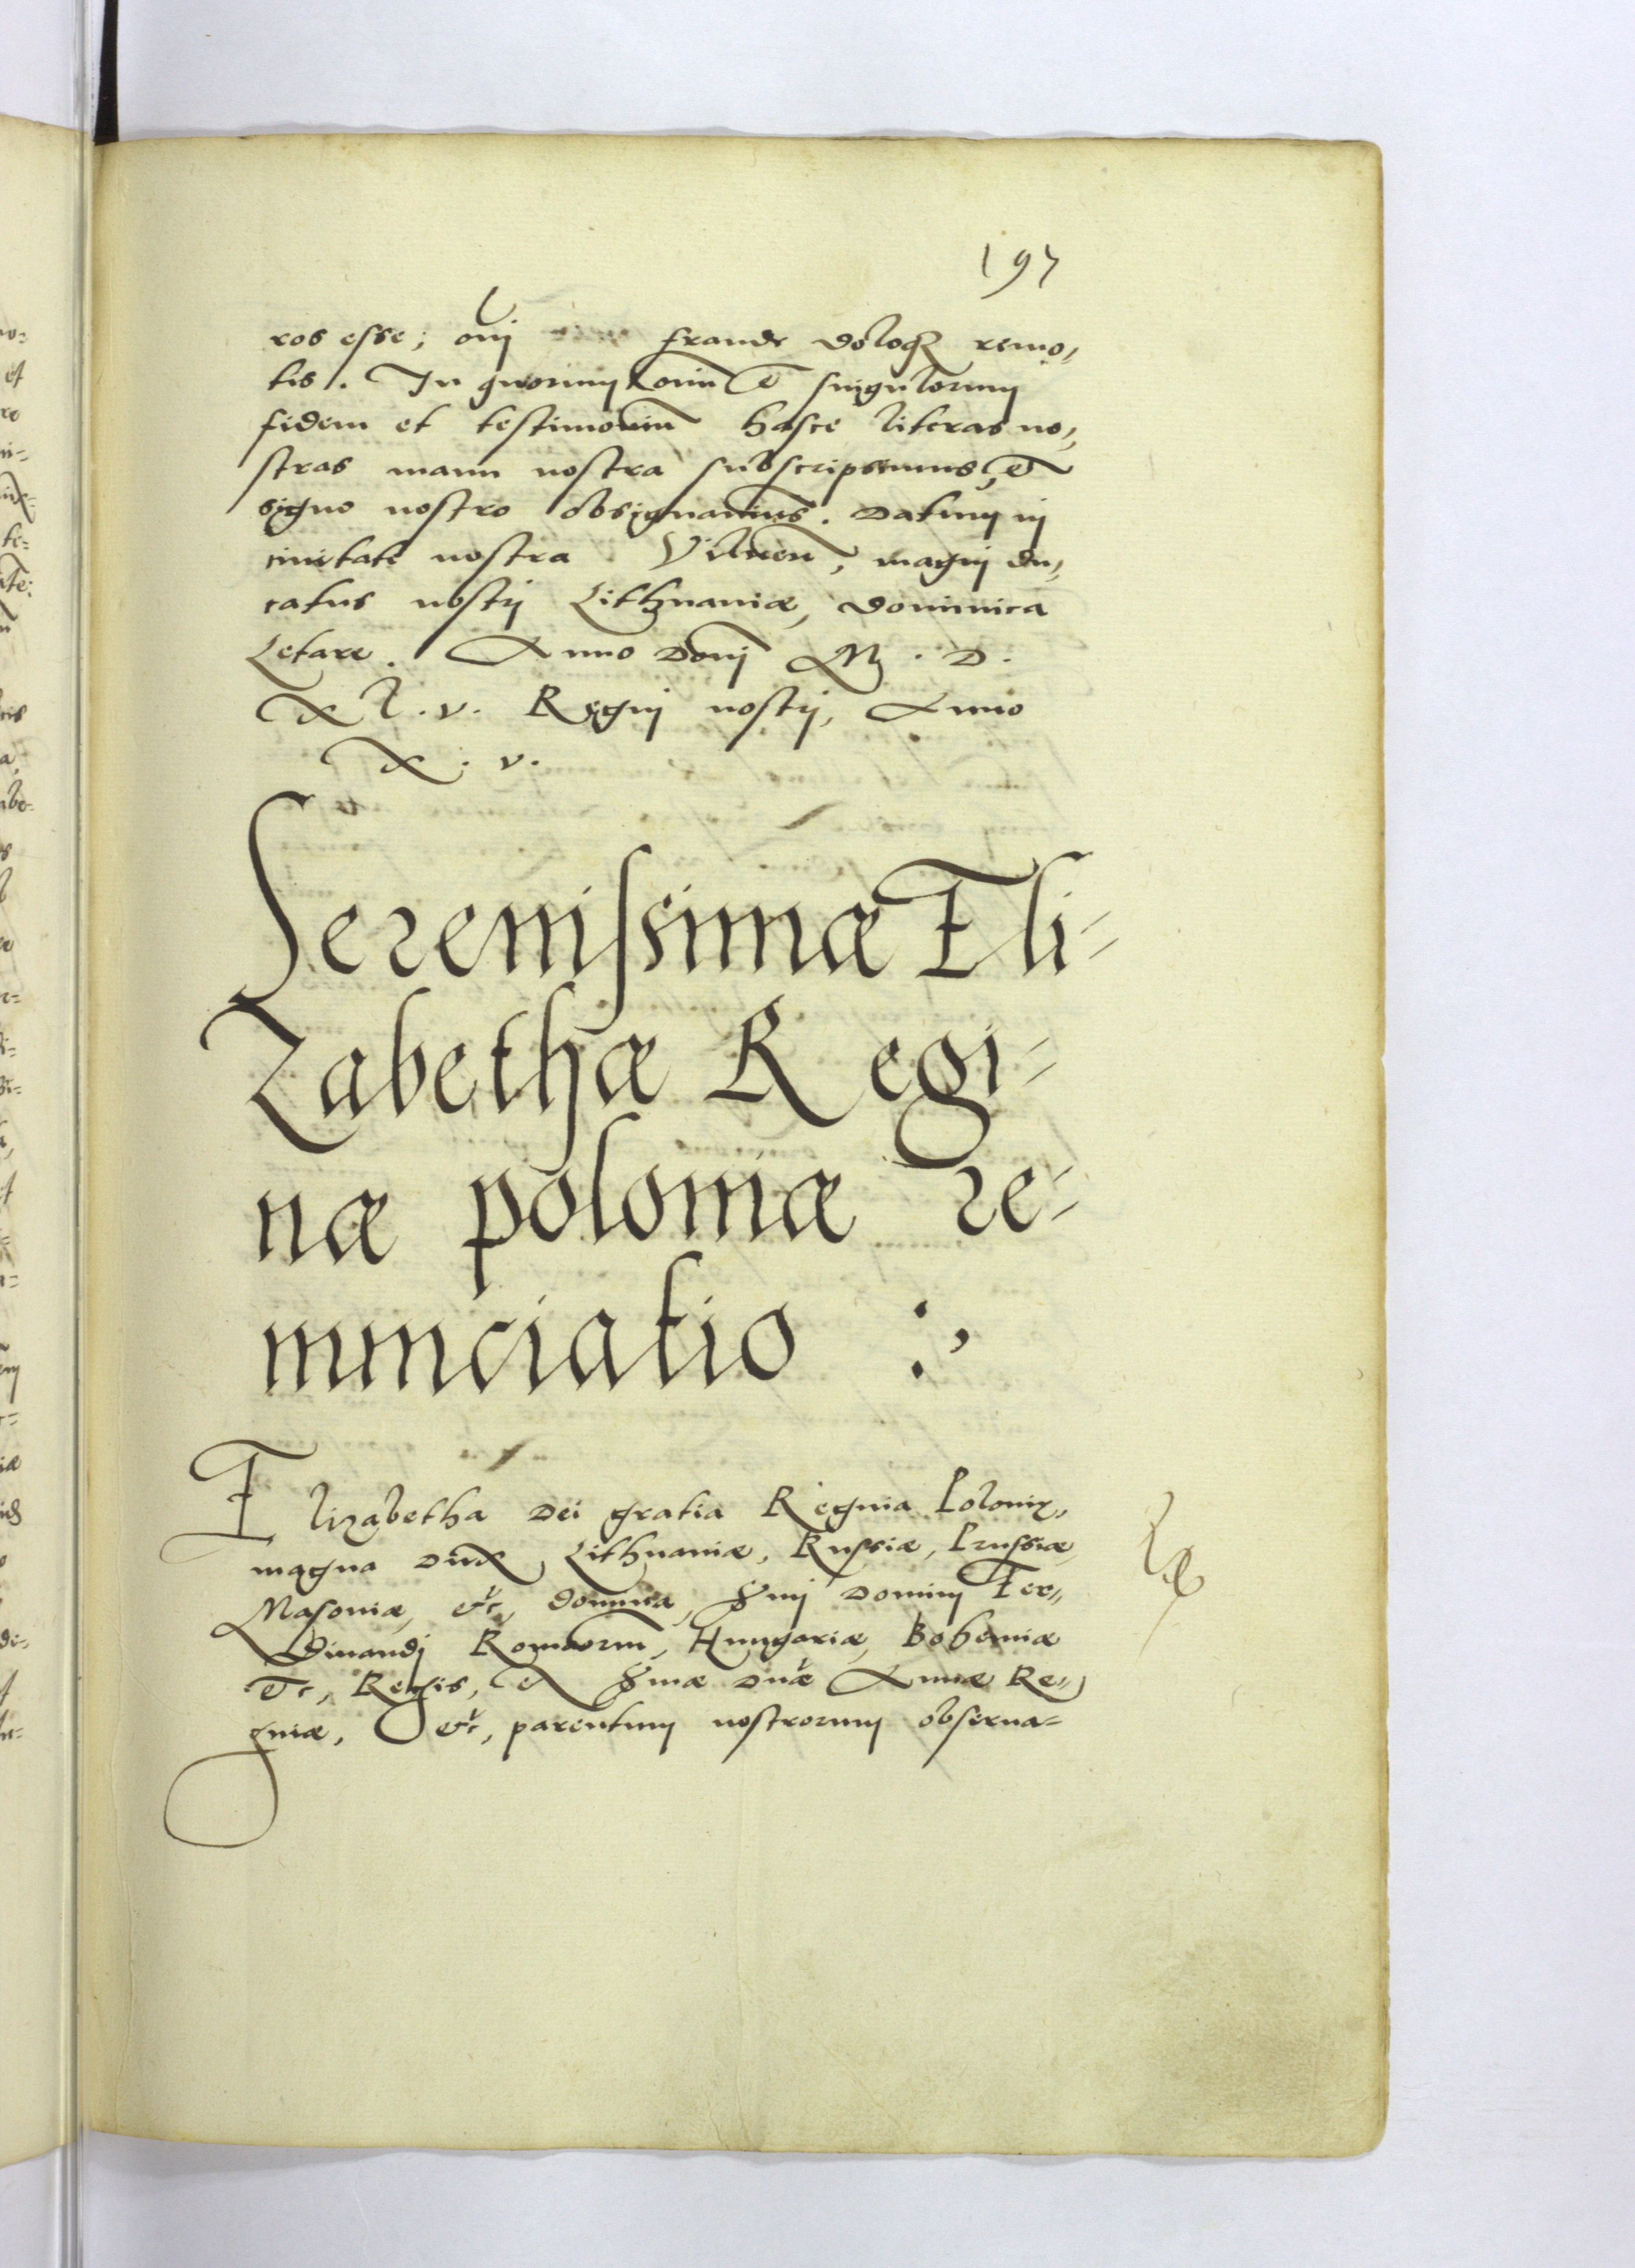 197
ros esse; oĩj fraude doloq3 remo„
tis. In quorum omĩn et singulorum
fidem et testimoniũ hasce literas no„
stras manu nostra subscripsimus, et
signo nostro obsignauimus. Datum in
ciuitate nostra Vilneñ, magni du„
catus nostri Lithuaniæ, Dominica
Letare. Anno Dõnj M. D.
XL.v. Regni nostrj, Anno
X. v.
Serenissimæ Eli=
Zabethæ Regi=
næ poloniæ re=
nunciatio :,
Elizabetha Dei gratia Regina Poloniæ,
magna Dux Lithuaniæ, Russiæ, Prussiæ
Masoniæ, etc, domina, Sr̃mj Dominj Fer„
dinandj Romãorũ, Hungariæ, Bohemiæ
etc, Regis, et Sr̃mæ Dñæ Annæ Re„
ginæ, etc, parentum nostrorum obserua=